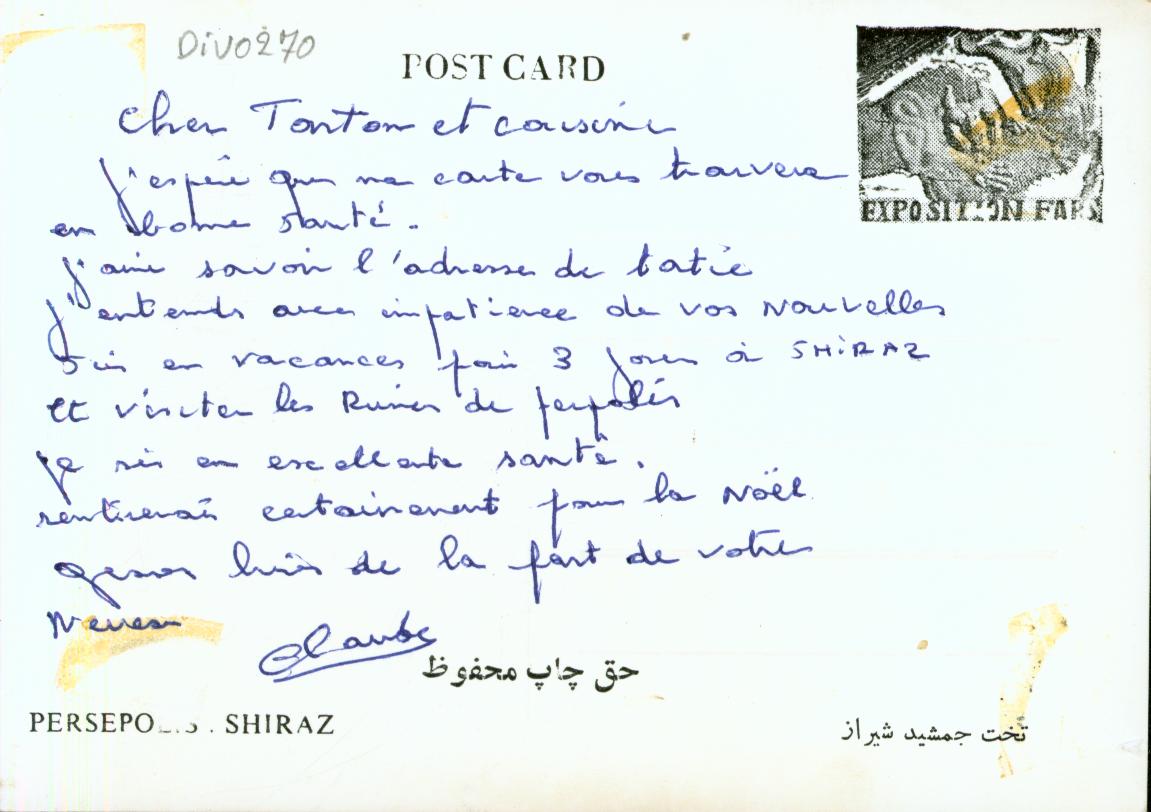 Div0270
POST CARD
EXPOSITION FARS
Cher Tonton et cousine
J'espère que ma carte vous trouvera
en bonne santé.
J'aimé savoir l'adresse de tatie
J'entends avec impatience de vos nouvelles
Suis en vacances pour 3 jours à SHIRAZ
et visiter les Ruines de perpolis
je suis en excellente santé.
rentrerais certainement pour la Noël
gros bises de la part de votre
Neveu
Claude
حق چاپ محفوظ
PERSEPOLIS . SHIRAZ
تخت جمشید شیراز